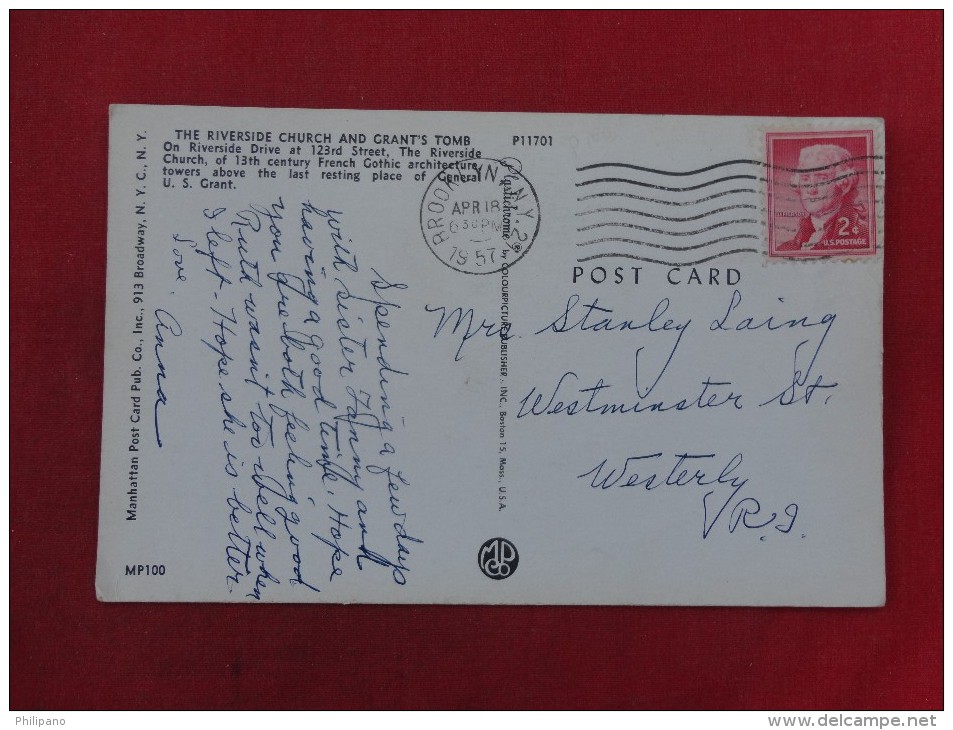 THE RIVERSIDE CHURCH AND GRANT'S TOMB
On Riverside Drive at 123rd Street, The Riverside
Church, of 13th century French Gothic architecture,
towers above the last resting place of General
U. S. Grant.
P11701
Manhattan Post Card Pub. Co., Inc., 913 Broadway, N. Y. C., N. Y.
MP100
Spending a few days
with sister Fanny and
having a good time. Hope
you are both feeling good
Ruth wasn't too well when
I left - Hope she is better
Love. Anna
Plastichrome ® by COLOURPICTURE PUBLISHER, INC. Boston 15, Mass., U.S.A.
MP
Co
BROOKLYN, N.Y. 2
APR 18
6 30 PM
1957
JEFFERSON
2¢
U.S. POSTAGE
POST CARD
Mrs Stanley Laing
Westminster St.
Westerly
R.I.
Philipano
www.delcampe.net